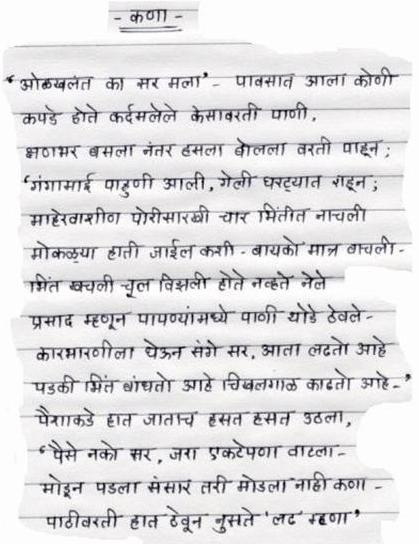 - कणा -
'ओळखलंत का सर मला' - पावसात आला कोणी
कपडे होते कर्दमलेले केसावरती पाणी.
क्षणभर बसला नंतर हसला बोलला वरती पाहून;
'गंगामाई पाहुणी आली, गेली घरट्यात राहून;
माहेरवाशीण पोरीसारखी चार भिंतीत नाचली
मोकळ्या हाती जाईल कशी - बायको मात्र वाचली -
भिंत खचली चूल विझली होते नव्हते नेले
प्रसाद म्हणून पापण्यांमध्ये पाणी थोडे ठेवले -
कारभारणीला घेऊन संगे सर, आता लढतो आहे
पडकी भिंत बांधतो आहे चिखलगाळ काढतो आहे -'
पैशाकडे हात जाताच हसत हसत उठला,
'पैसे नको सर, जरा एकटेपणा वाटला -
मोडून पडला संसार तरी मोडला नाही कणा -
पाठीवरती हात ठेवून नुसते 'लढ' म्हणा'